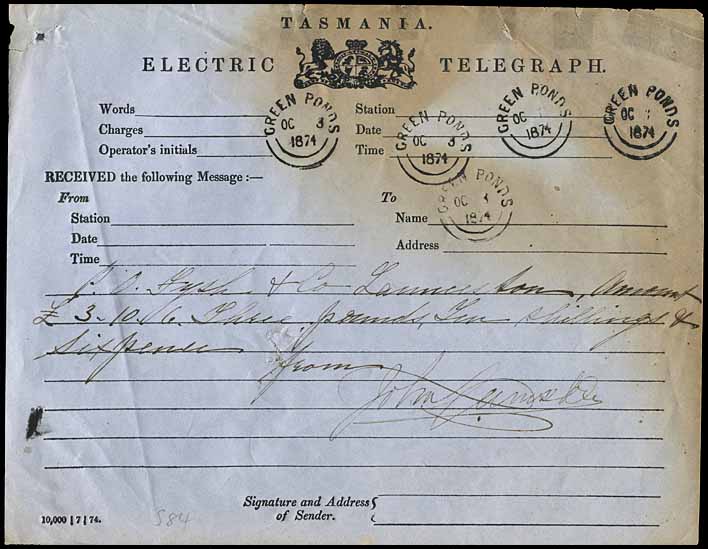 TASMANIA.
ELECTRIC TELEGRAPH.
Words
Station
Charges
Date
Operator's initials
Time
GREEN PONDS
OC 3
1874
GREEN PONDS
OC 3
1874
GREEN PONDS
OC
1874
GREEN PONDS
OC
1874
GREEN PONDS
OC
1874
RECEIVED the following Message:—
From
To
Station
Name
Date
Address
Time
& Co Launceston, Amount
£ 3.10.6. Three pounds, Ten shillings &
sixpence from
John
Signature and Address
of Sender.
10,000 | 7 | 74.
S84